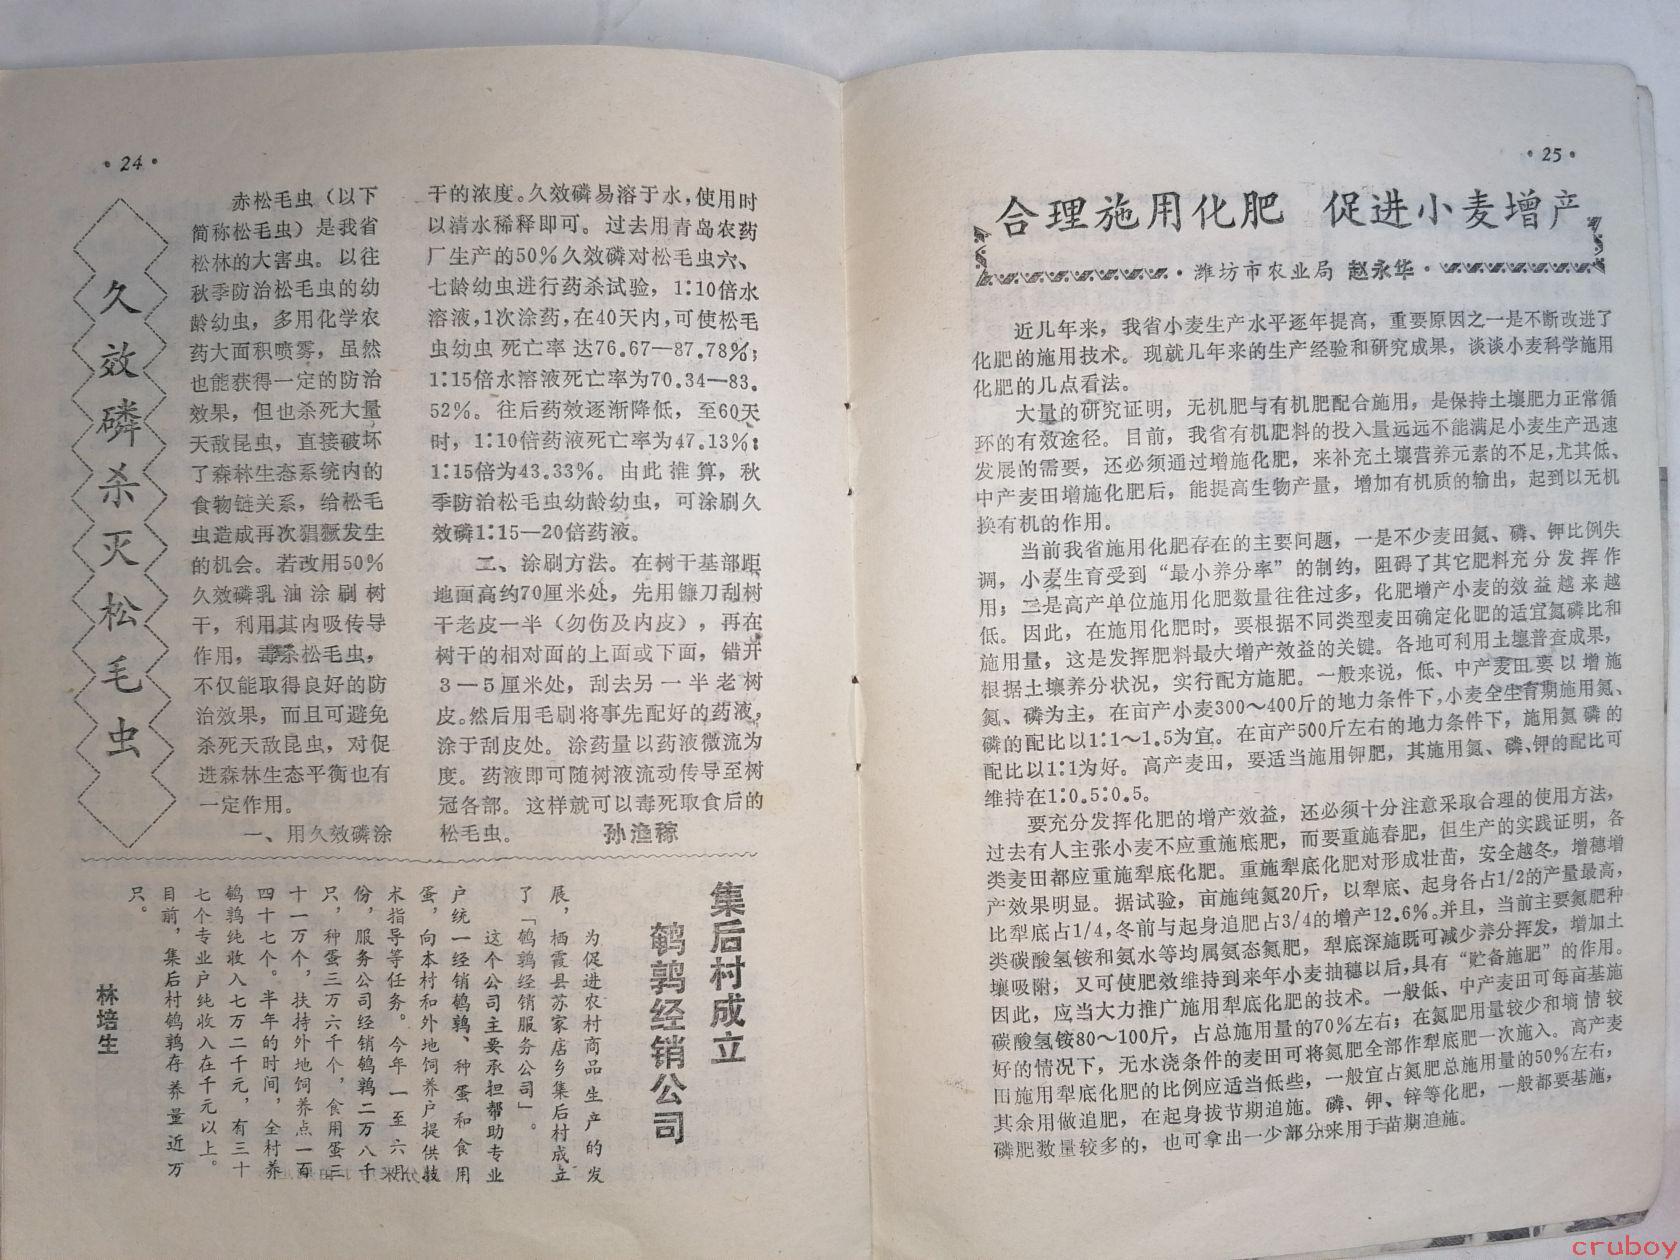 ·24·
久效磷杀灭松毛虫
赤松毛虫（以下
简称松毛虫）是我省
松林的大害虫。以往
秋季防治松毛虫的幼
龄幼虫，多用化学农
药大面积喷雾，虽然
也能获得一定的防治
效果，但也杀死大量
天敌昆虫，直接破坏
了森林生态系统内的
食物链关系，给松毛
虫造成再次猖獗发生
的机会。若改用50%
久效磷乳油涂刷树
干，利用其内吸传导
作用，毒杀松毛虫，
不仅能取得良好的防
治效果，而且可避免
杀死天敌昆虫，对促
进森林生态平衡也有
一定作用。
一、用久效磷涂
干的浓度。久效磷易溶于水，使用时
以清水稀释即可。过去用青岛农药
厂生产的50%久效磷对松毛虫六、
七龄幼虫进行药杀试验，1∶10倍水
溶液，1次涂药，在40天内，可使松毛
虫幼虫死亡率达76.67—87.78%；
1∶15倍水溶液死亡率为70.34—83.
52%。往后药效逐渐降低，至60天
时，1∶10倍药液死亡率为47.13%；
1∶15倍为43.33%。由此推算，秋
季防治松毛虫幼龄幼虫，可涂刷久
效磷1∶15—20倍药液。
二、涂刷方法。在树干基部距
地面高约70厘米处，先用镰刀刮树
干老皮一半（勿伤及内皮），再在
树干的相对面的上面或下面，错开
3—5厘米处，刮去另一半老树
皮。然后用毛刷将事先配好的药液，
涂于刮皮处。涂药量以药液微流为
度。药液即可随树液流动传导至树
冠各部。这样就可以毒死取食后的
松毛虫。 孙渔稼
集后村成立
鹌鹑经销公司
为促进农村商品生产的发
展，栖霞县苏家店乡集后村成立
了「鹌鹑经销服务公司」。
这个公司主要承担帮助专业
户统一经销鹌鹑、种蛋和食用
蛋，向本村和外地饲养户提供技
术指导等任务。今年一至六月
份，服务公司经销鹌鹑二万八千
只，种蛋三万六千个，食用蛋三
十一万个，扶持外地饲养点一百
四十七个。半年的时间，全村养
鹌鹑纯收入七万二千元，有三十
七个专业户纯收入在千元以上。
目前，集后村鹌鹑存养量近万
只。
林培生
·25·
合理施用化肥 促进小麦增产
·潍坊市农业局 赵永华·
近几年来，我省小麦生产水平逐年提高，重要原因之一是不断改进了
化肥的施用技术。现就几年来的生产经验和研究成果，谈谈小麦科学施用
化肥的几点看法。
大量的研究证明，无机肥与有机肥配合施用，是保持土壤肥力正常循
环的有效途径。目前，我省有机肥料的投入量远远不能满足小麦生产迅速
发展的需要，还必须通过增施化肥，来补充土壤营养元素的不足，尤其低、
中产麦田增施化肥后，能提高生物产量，增加有机质的输出，起到以无机
换有机的作用。
当前我省施用化肥存在的主要问题，一是不少麦田氮、磷、钾比例失
调，小麦生育受到“最小养分率”的制约，阻碍了其它肥料充分发挥作
用；二是高产单位施用化肥数量往往过多，化肥增产小麦的效益越来越
低。因此，在施用化肥时，要根据不同类型麦田确定化肥的适宜氮磷比和
施用量，这是发挥肥料最大增产效益的关键。各地可利用土壤普查成果，
根据土壤养分状况，实行配方施肥。一般来说，低、中产麦田要以增施
氮、磷为主，在亩产小麦300～400斤的地力条件下，小麦全生育期施用氮、
磷的配比以1∶1～1.5为宜。在亩产500斤左右的地力条件下，施用氮磷的
配比以1∶1为好。高产麦田，要适当施用钾肥，其施用氮、磷、钾的配比可
维持在1∶0.5∶0.5。
要充分发挥化肥的增产效益，还必须十分注意采取合理的使用方法，
过去有人主张小麦不应重施底肥，而要重施春肥，但生产的实践证明，各
类麦田都应重施犁底化肥。重施犁底化肥对形成壮苗，安全越冬，增穗增
产效果明显。据试验，亩施纯氮20斤，以犁底、起身各占1/2的产量最高，
比犁底占1/4，冬前与起身追肥占3/4的增产12.6%。并且，当前主要氮肥种
类碳酸氢铵和氨水等均属氨态氮肥，犁底深施既可减少养分挥发，增加土
壤吸附，又可使肥效维持到来年小麦抽穗以后，具有“贮备施肥”的作用。
因此，应当大力推广施用犁底化肥的技术。一般低、中产麦田可每亩基施
碳酸氢铵80～100斤，占总施用量的70%左右；在氮肥用量较少和墒情较
好的情况下，无水浇条件的麦田可将氮肥全部作犁底肥一次施入。高产麦
田施用犁底化肥的比例应适当低些，一般宜占氮肥总施用量的50%左右，
其余用做追肥，在起身拔节期追施。磷、钾、锌等化肥，一般都要基施，
磷肥数量较多的，也可拿出一少部分来用于苗期追施。
cruboy